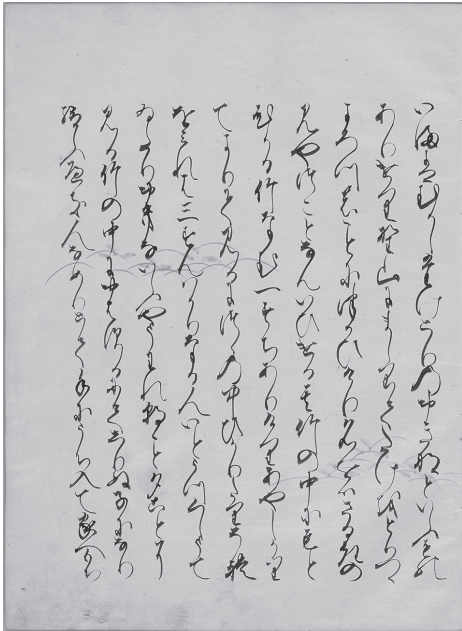 いまはむかしたけとりのおきなといふもの
ありけり野山にましりてたけをとりつゝ
よろつのことにつかひけり名をはさるきの
みやつことなんいひける其竹の中にもと
ひかる竹なむ一すちありけりあやしかり
てよりて見るにつゝの中ひかりたりそれ
をみれは三すんはかりなる人いとうつくしうて
ゐたりおきないふやうわれ朝こと夕ことに
見る竹の中におはするにてしりぬ子になり
給へき人なめりとて手にうち入て家へもち